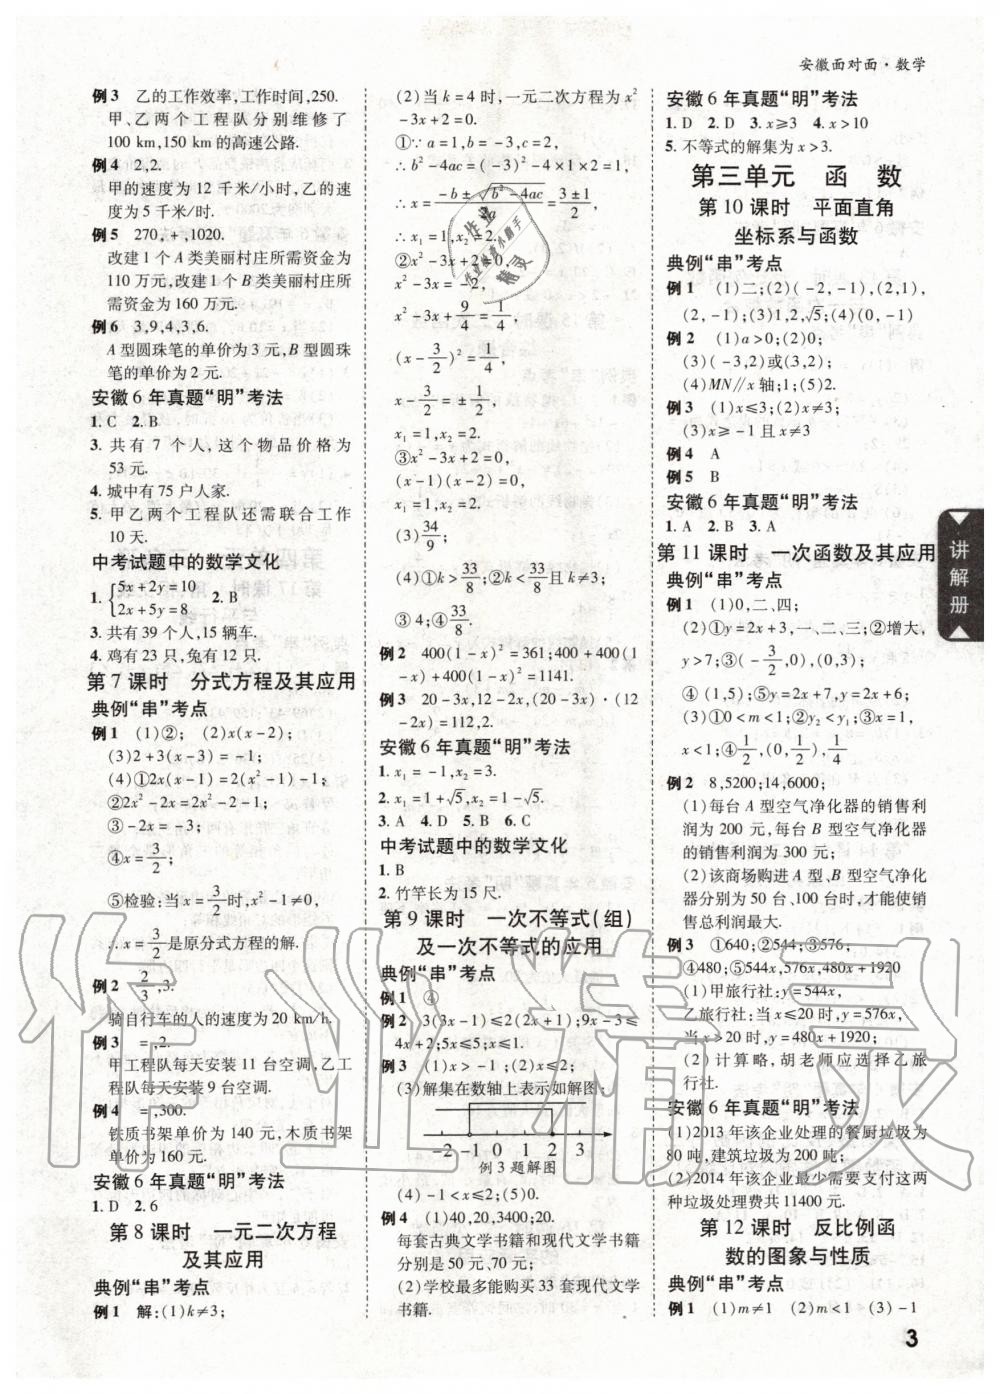 安徽面对面·数学
例3 乙的工作效率,工作时间,250.
甲、乙两个工程队分别维修了
100 km,150 km的高速公路.
例4 2,2.
甲的速度为 12 千米/小时,乙的速
度为5千米/时.
例5 270,+,1020.
改建1个A类美丽村庄所需资金为
110万元,改建1个B类美丽村庄所
需资金为160万元.
例6 3,9,4,3,6.
A型圆珠笔的单价为3元,B型圆珠
笔的单价为2元.
安徽6年真题“明”考法
1. C 2. B
3. 共有 7 个人,这个物品价格为
53元.
4. 城中有75户人家.
5. 甲乙两个工程队还需联合工作
10天.
中考试题中的数学文化
1. {5x+2y=10 2x+5y=8 2. B
3. 共有39个人,15辆车.
4. 鸡有23只,兔有12只.
第7课时 分式方程及其应用
典例“串”考点
例1 (1)②; (2)x(x-2);
(3)2+3(x-3)=-1;
(4)①2x(x-1)=2(x²-1)-1;
②2x²-2x=2x²-2-1;
③-2x=-3;
④x=3/2;
⑤检验:当x=3/2时,x²-1≠0,
∴x=3/2是原分式方程的解.
例2 2/3,3.
骑自行车的人的速度为20 km/h.
例3 =,2.
甲工程队每天安装11台空调,乙工
程队每天安装9台空调.
例4 =,300.
铁质书架单价为140元,木质书架
单价为160元.
安徽6年真题“明”考法
1. D 2. 6
第8课时 一元二次方程
及其应用
典例“串”考点
例1 解:(1)k≠3;
(2)当k=4时,一元二次方程为x²
-3x+2=0.
①∵a=1,b=-3,c=2,
∴b²-4ac=(-3)²-4×1×2=1.
∴x=(-b±√(b²-4ac))/2a=(3±1)/2,
∴x₁=1,x₂=2.
②x²-3x+2=0,
x²-3x=-2,
x²-3x+9/4=1/4,
(x-3/2)²=1/4,
x-3/2=±1/2,
x₁=1,x₂=2.
③x²-3x+2=0,
(x-1)(x-2)=0,
x₁=1,x₂=2.
(3)34/9;
(4)①k>33/8;②k=33/8;
③k<33/8;④k≤33/8.
例2 400(1-x)²=361;400+400(1
-x)+400(1-x)²=1141.
例3 20-3x,12-2x,(20-3x)·(12
-2x)=112,2.
安徽6年真题“明”考法
1. x₁=-1,x₂=3.
2. x₁=1+√5,x₂=1-√5.
3. A 4. D 5. B 6. C
中考试题中的数学文化
1. B
2. 竹竿长为15尺.
第9课时 一次不等式(组)
及一次不等式的应用
典例“串”考点
例1 ④
例2 3(3x-1)≤2(2x+1);9x-3≤
4x+2;5x≤5;x≤1.
例3 (1)x>-1;(2)x≤2;
(3)解集在数轴上表示如解图:
-2 -1 0 1 2 3
例3题解图
(4)-1<x≤2;(5)0.
例4 (1)40,20,3400;20.
每套古典文学书籍和现代文学书籍
分别是50元,70元;
(2)学校最多能购买33套现代文学
书籍.
安徽6年真题“明”考法
1. D 2. D 3. x≥3 4. x>10
5. 不等式的解集为x>3.
第三单元 函 数
第10课时 平面直角
坐标系与函数
典例“串”考点
例1 (1)二;(2)(-2,-1),(2,1),
(2,-1);(3)1,2,√5;(4)(0,-1)
例2 (1)a>0;(2)0;
(3)(-3,2)或(3,2);
(4)MN∥x轴;1;(5)2.
例3 (1)x≤3;(2)x≠3;
(3)x≥-1且x≠3
例4 A
例5 B
安徽6年真题“明”考法
1. A 2. B 3. A
第11课时 一次函数及其应用
典例“串”考点
例1 (1)0,二、四;
(2)①y=2x+3,一、二、三;②增大,
y>7;③(-3/2,0),(0,3);
④(1,5);⑤y=2x+7,y=2x+6;
(3)①0<m<1;②y₂<y₁;③x=1,
x<1;④1/2,(0,1/2),1/4.
例2 8,5200;14,6000;
(1)每台A型空气净化器的销售利
润为200元,每台B型空气净化器
的销售利润为300元;
(2)该商场购进A型、B型空气净化
器分别为50台、100台时,才能使销
售总利润最大.
例3 ①640;②544x,③576,
④480;⑤544x,576x,480x+1920
(1)甲旅行社:y=544x,
乙旅行社:当x≤20时,y=576x,
当x>20时,y=480x+1920;
(2)计算略,胡老师应选择乙旅
行社.
安徽6年真题“明”考法
(1)2013年该企业处理的餐厨垃圾为
80吨,建筑垃圾为200吨;
(2)2014年该企业最少需要支付这两
种垃圾处理费共11400元.
第12课时 反比例函
数的图象与性质
典例“串”考点
例1 (1)m≠1 (2)m<1 (3)-1
讲解册
3
作业精灵